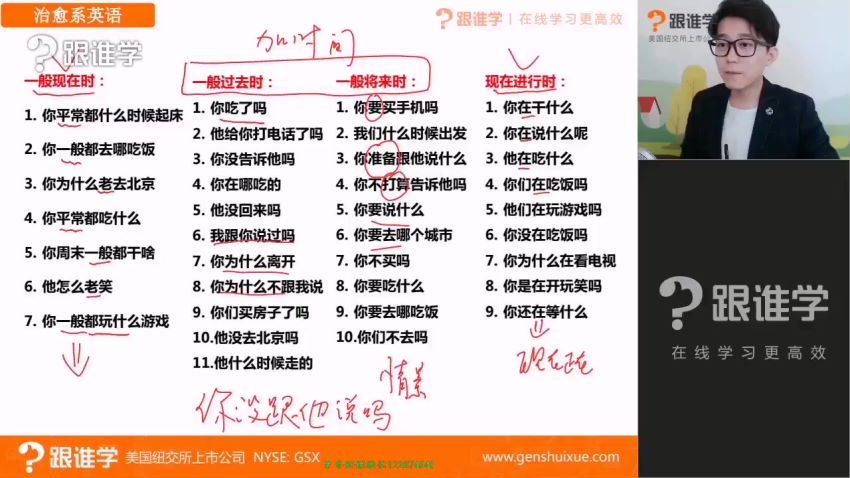 治愈系英语
跟谁学
跟谁学 | 在线学习更高效
跟谁学
美国纽交所上市公司
加时间
一般现在时：
1. 你平常都什么时候起床
2. 你一般都去哪吃饭
3. 你为什么老去北京
4. 你平常都吃什么
5. 你周末一般都干啥
6. 他怎么老笑
7. 你一般都玩什么游戏
一般过去时：
1. 你吃了吗
2. 他给你打电话了吗
3. 你没告诉他吗
4. 你在哪吃的
5. 他没回来吗
6. 我跟你说过吗
7. 你为什么离开
8. 你为什么不跟我说
9. 你们买房子了吗
10.他没去北京吗
11.他什么时候走的
一般将来时：
1. 你要买手机吗
2. 我们什么时候出发
3. 你准备跟他说什么
4. 你不打算告诉他吗
5. 你要说什么
6. 你要去哪个城市
7. 你不买吗
8. 你要吃什么
9. 你要去哪吃饭
10.你们不去吗
现在进行时：
1. 你在干什么
2. 你在说什么呢
3. 他在吃什么
4. 你们在吃饭吗
5. 他们在玩游戏吗
6. 你没在吃饭吗
7. 你为什么在看电视
8. 你是在开玩笑吗
9. 你还在等什么
现在正在
情景
你没跟他说吗
跟谁学
在线学习更高效
跟谁学 美国纽交所上市公司 NYSE: GSX
www.genshuixue.com